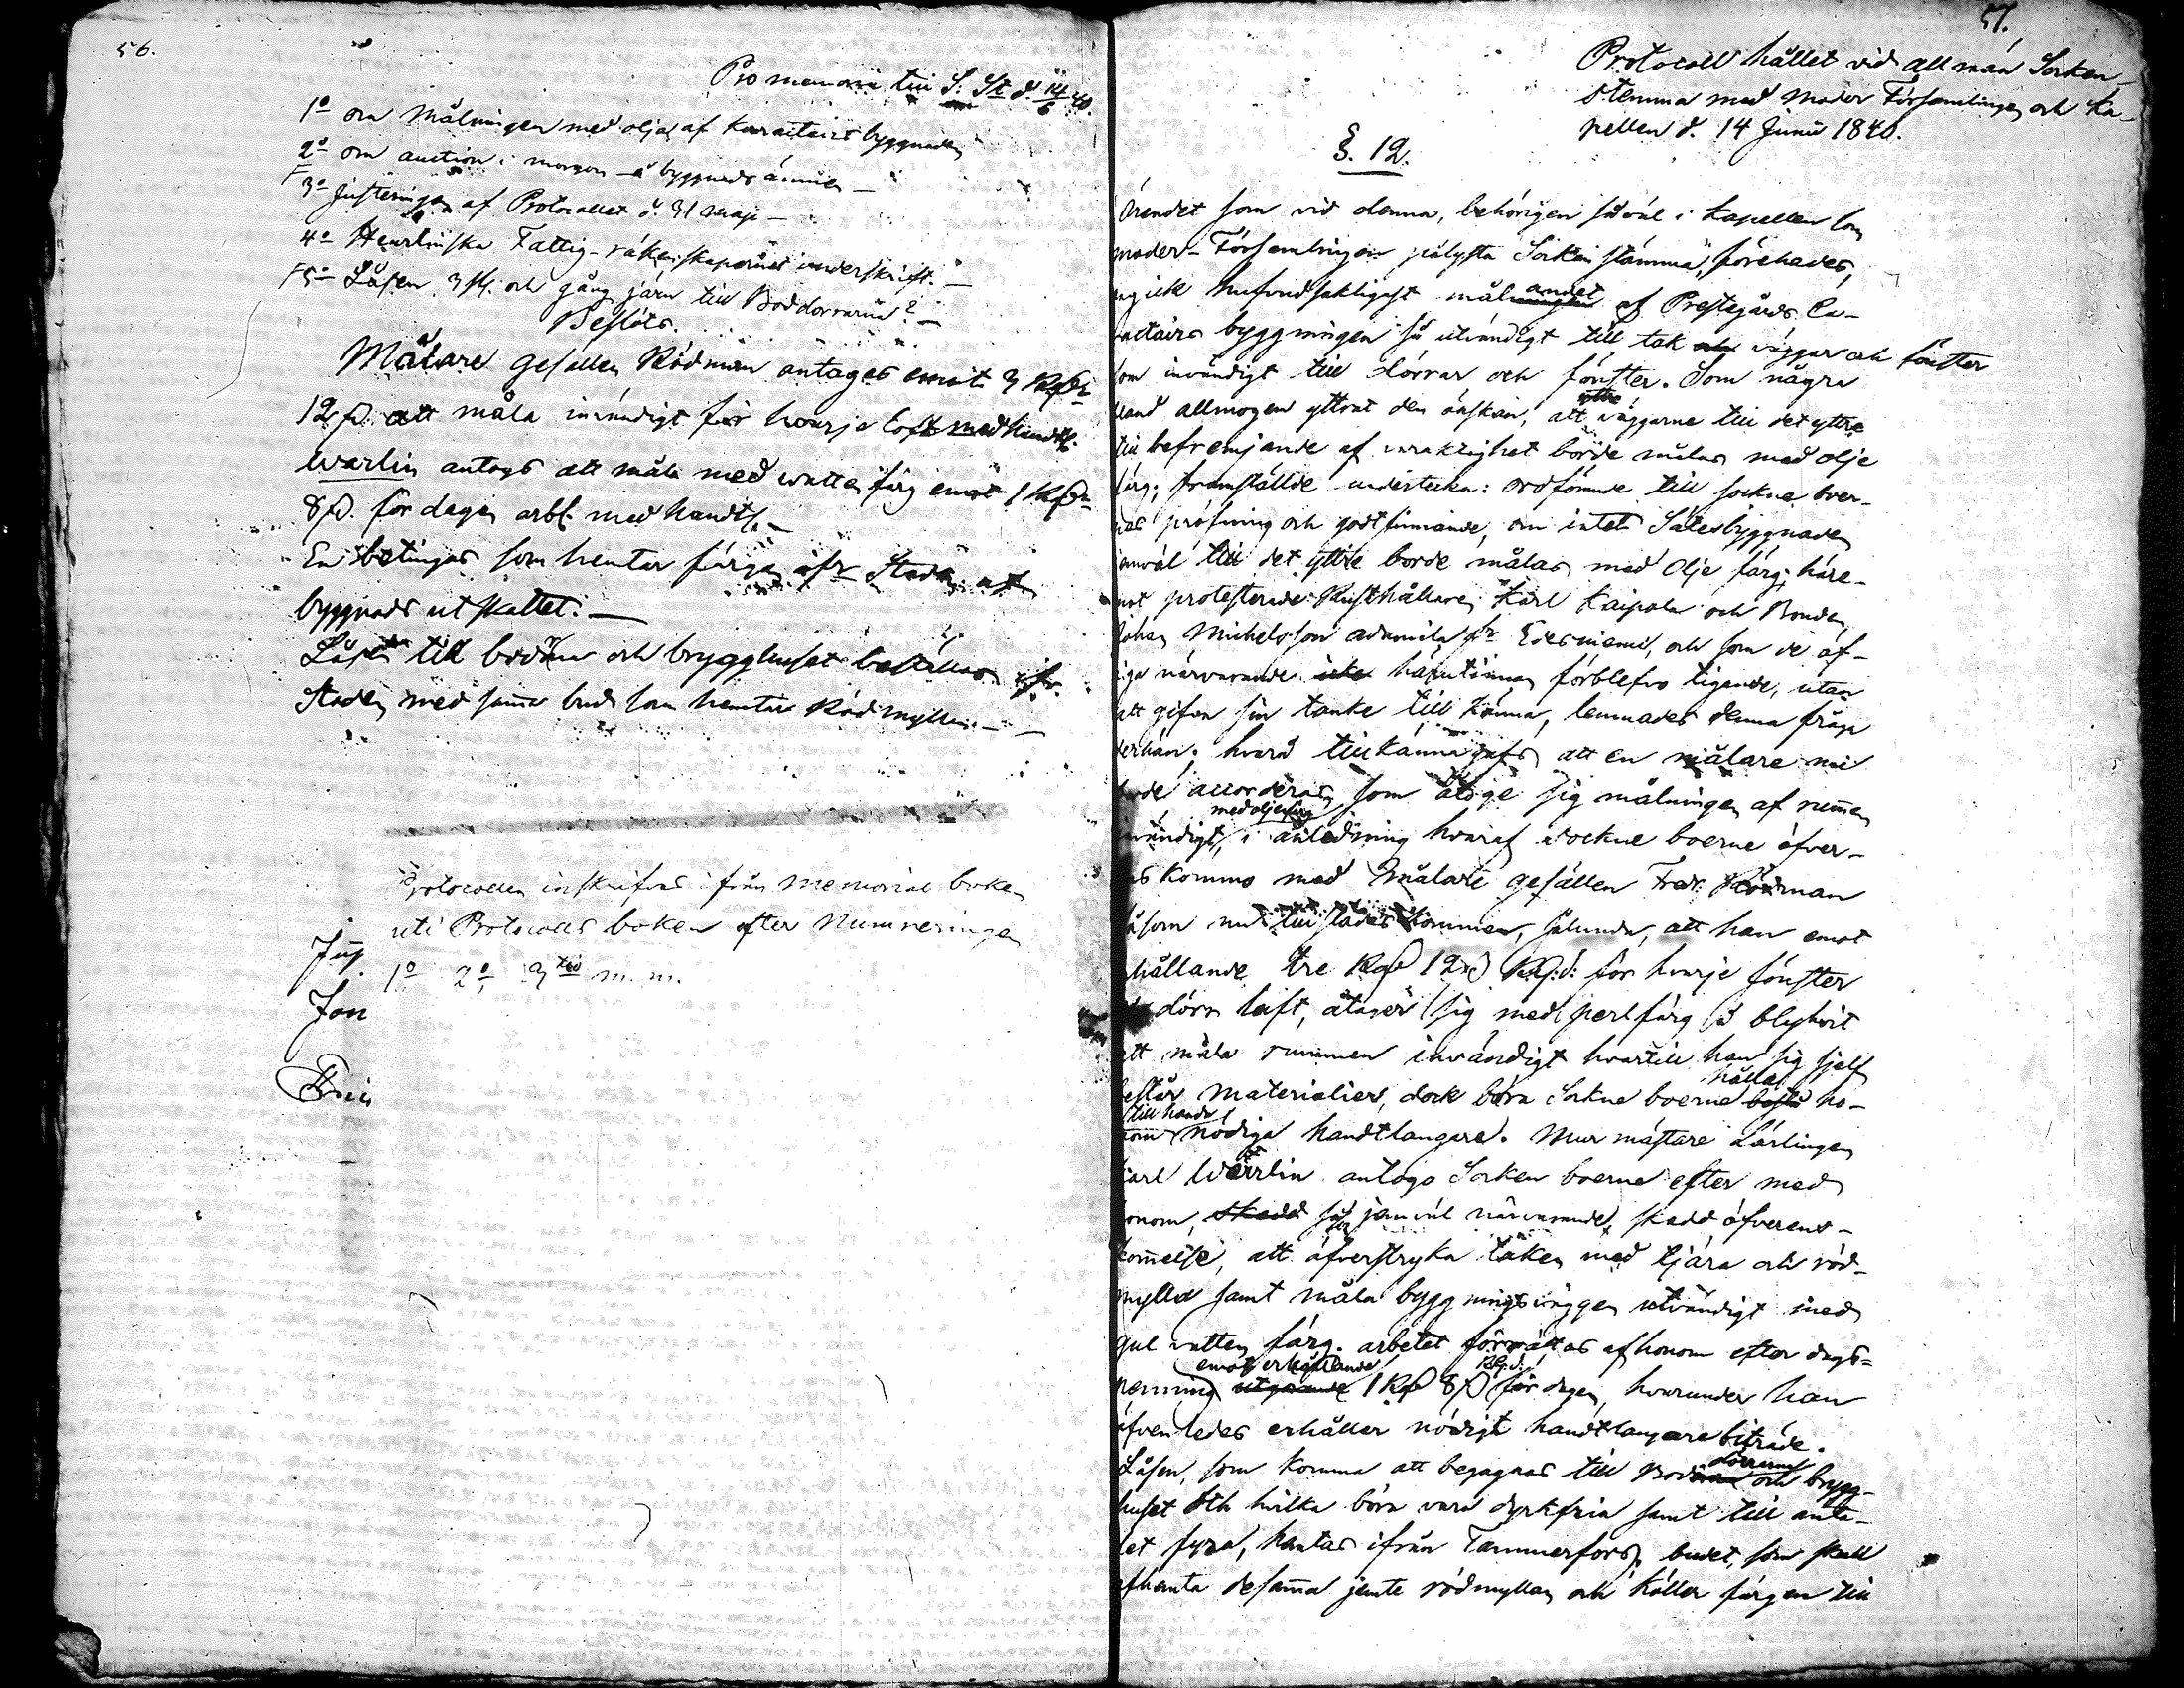 56.
Pro memoria till S: St d. 14/6 40.
1o om Målningen med olja af Karactairs byggnaden
2o om auction i morgon å byggnads ämnen —
3o Justeringen af Protocollet d. 31 Maji —
4o Heurlinska Fattig-räkenskapernes underskrift. —
5o Låsen 3 st. och gångjärn till Boddörrarna? —
Beslöts.
Målare Gesällen Rödman antages emot 3
12 att måla invändigt för hvarje med handtl.
Warlin antogs att måla med watten färg emot 1
8 för dagen arb. med handtl. —
En betingas som hemtar färgen ifr Staden
byggnads utskottet. —
Låsen till bodarna och brygghuset beställas ifr.
Staden med samma bud som hemtar Rödmyllan. —
Protocollen inskrifvas ifrån memorial boken
uti Protocolls boken efter Numreringen
1o 2o 3tio m. m.
57.
Protocoll hållet vid allmän Socken-
stemma med Moder Församlingen och Ka-
pellen d. 14 Junii 1840.
§. 12.
Ärendet som vid denna, behörigen såväl i Kapellen som
moder-Församlingen pålysta Sockenstämma, förehades,
angick hufvudsakligast målandet af Prestegårds Ca-
ractairs byggningen så utvändigt till tak väggar och fönster
som invändigt till dörrar och fönster. Som några
bland allmogen yttrat den önskan, att yttre väggarne till det yttre
till befremjande af varaktighet borde målas med olje
färg; framställde undertecknad ordförande till sockne boer-
nas pröfning och godtfinnande, om intet Sätesbyggnaden
jemväl till det yttre borde målas med Olje färg; häre-
mot protesterade Rusthållaren Karl Kaipala och Bonden
Johan Michelsson Adamila fr Edesniemi, och som de öf-
riga närvarande förblefvo tigande, utan
att gifva sin tanke till känna, lemnades denna fråga
derhän; hvard tillkänna gafs att en målare nu
borde accorderas, som åtoge sig målningen af rummen
invändigt, med oljefärg i anledning hvaraf sockne boerne öfver-
ens kommo med Målare gesällen Fredr. Rödman
såsom nu tillstädes kommen, sålunda, att han emot
erhållande tre 12 för hvarje fönster
dörr luft, åtager sig med perlfärg å blyhvit
att måla rummen invändigt hvartill han sig sjelf
består materialier, dock böra Sockne boerne hålla ho-
nom till handa nödiga handtlangare. Mur mästare Lärlingen
Karl Werrlin antogo Socken boerne efter med
honom, jemväl närvarande, skedd öfverens-
kommelse, att öfverstryka taken med tjära och röd-
mylla samt måla byggningsväggen utvändigt med
gul vatten färg. arbetet förrättas af honom efter dags-
penning emot erhållande 1 8 för dagen, hvarunder han
äfvenledes erhåller nödigt handtlangare biträde.
Låsen, som komma att begagnas till Bod dörrarne och brygg-
huset och hvilka böra vara dyrkfria samt till anta-
let fyra, hemtas ifrån Tammerfors, budet, som skall
afhemta desamma jemte rödmyllan och Köller färgen till